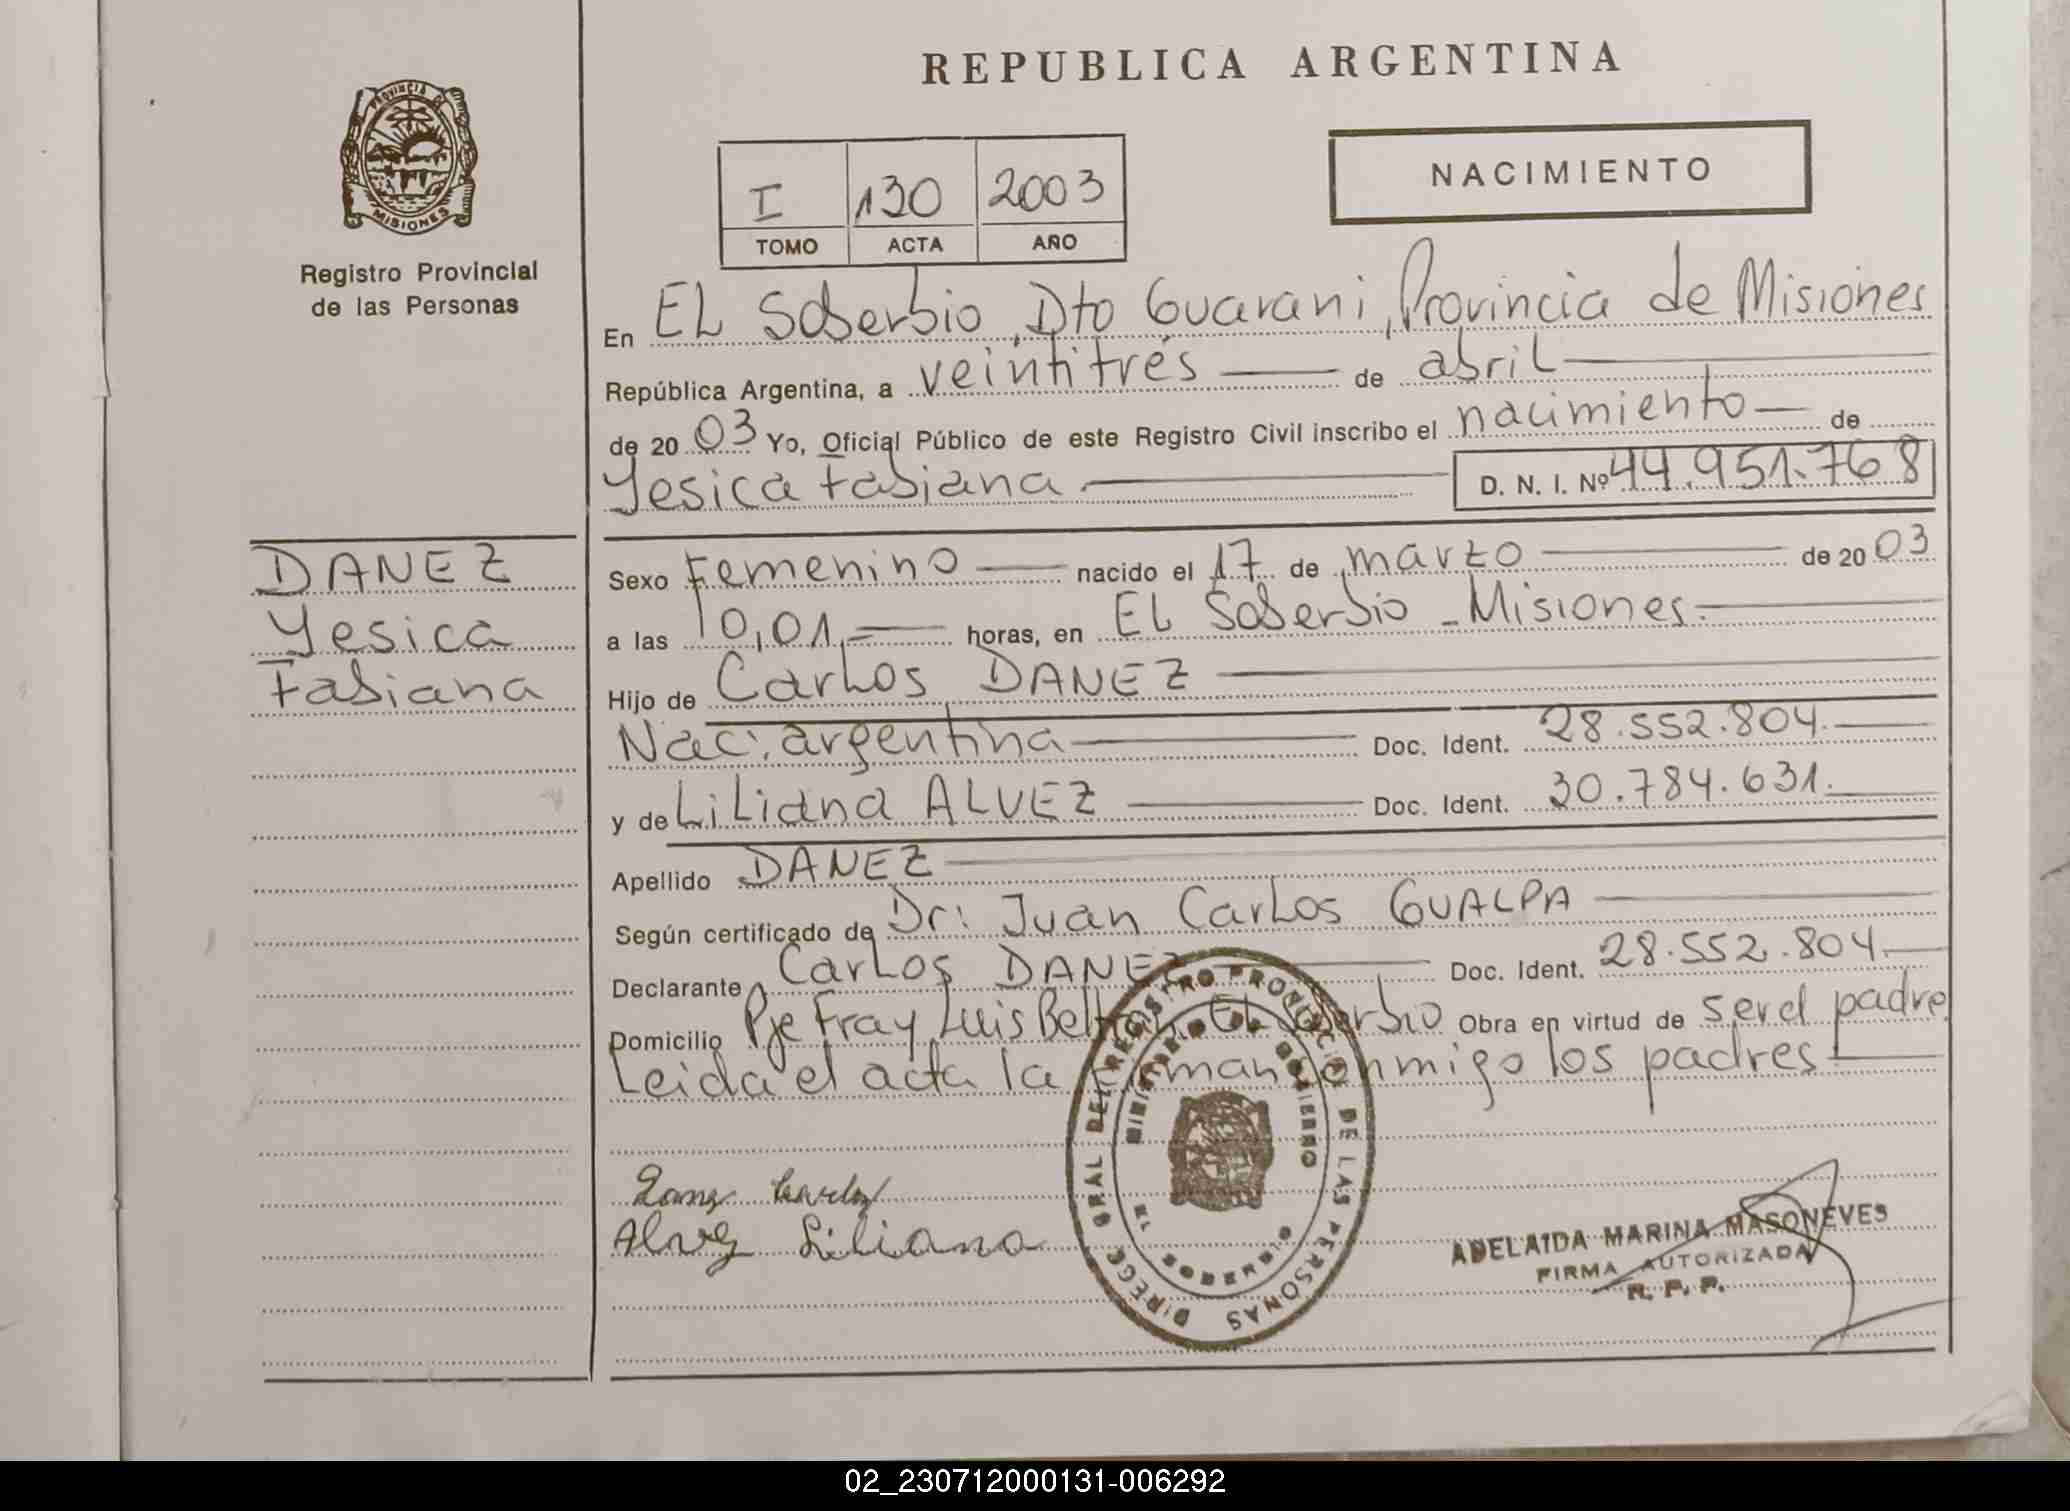 REPUBLICA ARGENTINA
PROVINCIA DE
MISIONES
Registro Provincial
de las Personas
I 130 2003
TOMO ACTA AÑO
NACIMIENTO
En EL Soberbio, Dto Guarani, Provincia de Misiones
República Argentina, a veintitrés de abril
de 2003 Yo, Oficial Público de este Registro Civil inscribo el nacimiento de
Yesica Fabiana D. N. I. Nº 44.951.768
DANEZ
Yesica
Fabiana
Sexo Femenino nacido el 17 de marzo de 2003
a las 10,01.= horas, en EL Soberbio - Misiones.
Hijo de Carlos DANEZ
Nac: argentina Doc. Ident. 28.552.804.
y de Liliana ALVEZ Doc. Ident. 30.784.631.
Apellido DANEZ
Según certificado de Dr: Juan Carlos GUALPA
Declarante Carlos DANEZ Doc. Ident. 28.552.804.
Domicilio Pje Fray Luis Beltran El Soberbio Obra en virtud de ser el padre
Leida el acta la firman conmigo los padres.
DIREC. GRAL DEL REGISTRO PROVINCIAL DE LAS PERSONAS
MINISTERIO DE GOBIERNO
MISIONES
Alvez Liliana
ADELAIDA MARINA MASONEVES
FIRMA AUTORIZADA
R. P. P.
02_230712000131-006292